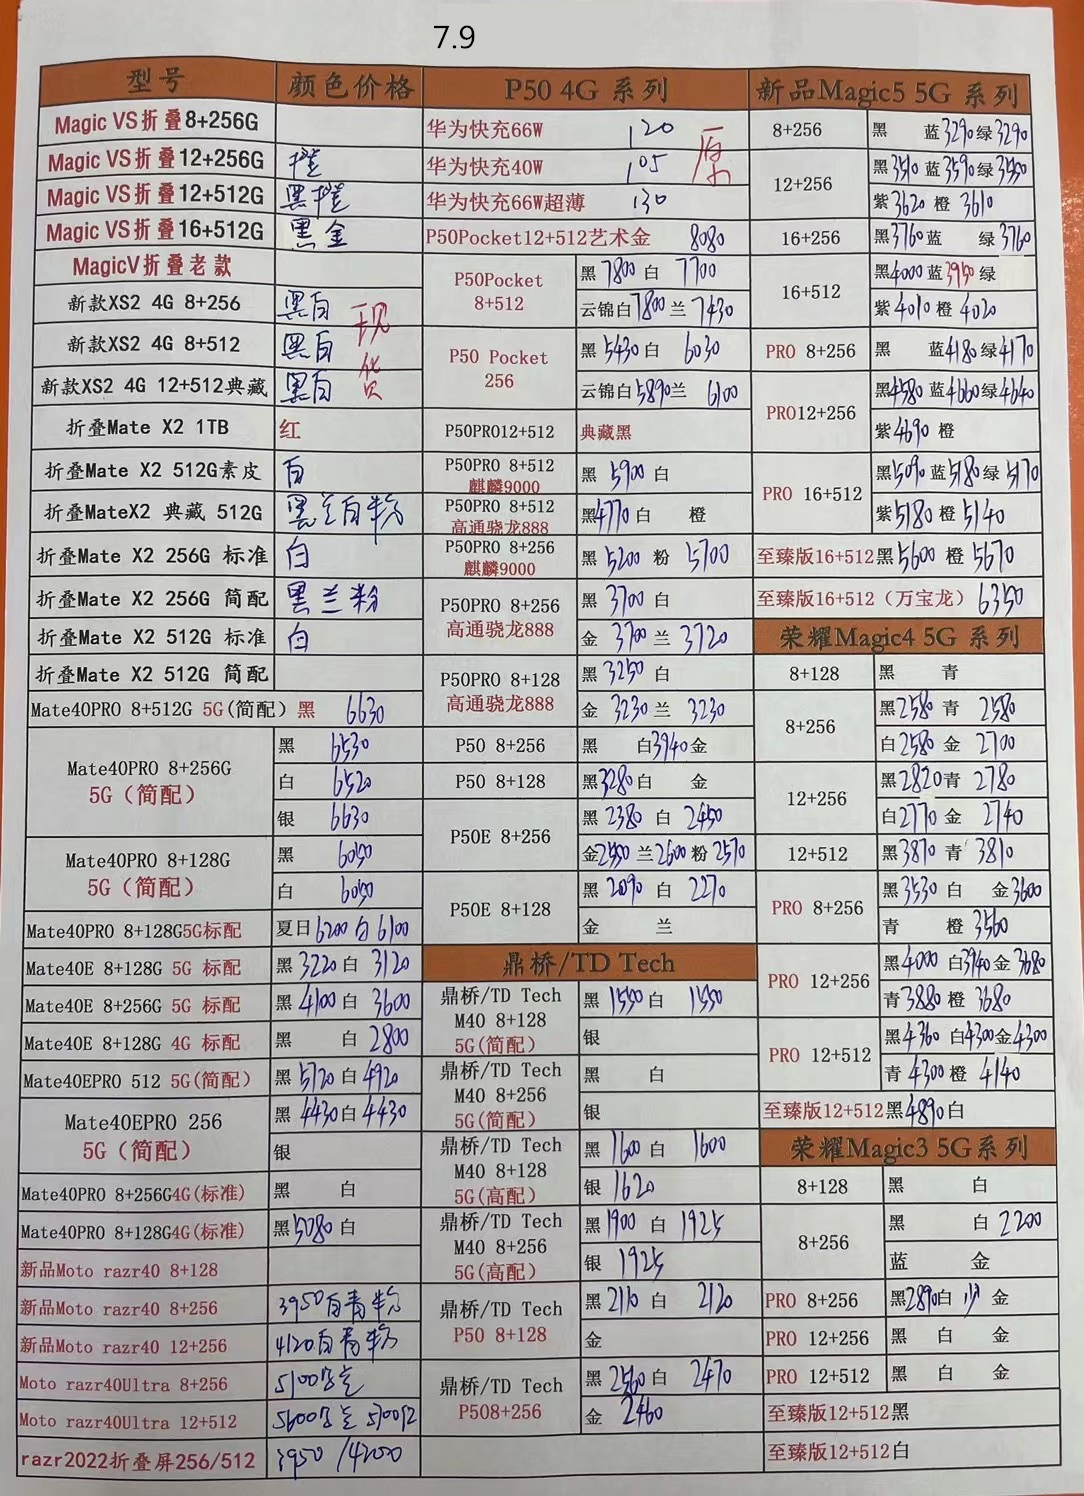 7.9
型号 颜色价格
Magic VS折叠8+256G
Magic VS折叠12+256G 橙
Magic VS折叠12+512G 黑橙
Magic VS折叠16+512G 黑金
MagicV折叠老款
新款XS2 4G 8+256 黑白
新款XS2 4G 8+512 黑白
新款XS2 4G 12+512典藏 黑白
现货
折叠Mate X2 1TB 红
折叠Mate X2 512G素皮 白
折叠MateX2 典藏 512G 黑兰白粉
折叠Mate X2 256G 标准 白
折叠Mate X2 256G 简配 黑兰粉
折叠Mate X2 512G 标准 白
折叠Mate X2 512G 简配
Mate40PRO 8+512G 5G(简配) 黑 6630
Mate40PRO 8+256G
5G（简配）
黑 6530
白 6520
银 6630
Mate40PRO 8+128G
5G（简配）
黑 6050
白 6050
Mate40PRO 8+128G5G标配 夏日6200白6100
Mate40E 8+128G 5G 标配 黑3220白 3120
Mate40E 8+256G 5G 标配 黑4100白 3600
Mate40E 8+128G 4G 标配 黑 白2800
Mate40EPRO 512 5G(简配) 黑5720白4920
Mate40EPRO 256
5G（简配）
黑 4430白4430
银
Mate40PRO 8+256G4G(标准) 黑 白
Mate40PRO 8+128G4G(标准) 黑5080白
新品Moto razr40 8+128
新品Moto razr40 8+256 3950白青粉
新品Moto razr40 12+256 4120白青粉
Moto razr40Ultra 8+256 5100
Moto razr40Ultra 12+512 5600 5700红
razr2022折叠屏256/512 3950 /4200
P50 4G 系列
华为快充66W 120
华为快充40W 105
华为快充66W超薄 130
原
P50Pocket12+512艺术金 8080
P50Pocket
8+512
黑 7800 白 7700
云锦白7800 兰 7430
P50 Pocket
256
黑 5430 白 6030
云锦白5890兰 6100
P50PRO12+512 典藏黑
P50PRO 8+512
麒麟9000
黑 5900 白
P50PRO 8+512
高通骁龙888
黑4770 白 橙
P50PRO 8+256
麒麟9000
黑 5200 粉 5700
P50PRO 8+256
高通骁龙888
黑 3700 白
金 3700 兰 3720
P50PRO 8+128
高通骁龙888
黑 3250 白
金 3230 兰 3230
P50 8+256 黑 白3940金
P50 8+128 黑3280白 金
P50E 8+256
黑 2380 白 2450
金2550 兰2600粉2570
P50E 8+128
黑 2090 白 2270
金 兰
鼎桥/TD Tech
鼎桥/TD Tech
M40 8+128
5G(简配)
黑 1550白 1550
银
鼎桥/TD Tech
M40 8+256
5G(简配)
黑 白
银
鼎桥/TD Tech
M40 8+128
5G(高配)
黑 1600 白 1600
银 1620
鼎桥/TD Tech
M40 8+256
5G(高配)
黑1900 白 1925
银 1925
鼎桥/TD Tech
P50 8+128
黑2110 白 2120
金
鼎桥/TD Tech
P508+256
黑 白 2470
金 2460
新品Magic5 5G 系列
8+256 黑 蓝3290绿3290
12+256
黑3510 蓝3590绿
紫3620 橙 3610
16+256 黑3760蓝 绿3760
16+512
黑4000蓝3950绿
紫4010橙 4020
PRO 8+256 黑 蓝4180绿4170
PRO12+256
黑4580蓝4660绿4640
紫4690 橙
PRO 16+512
黑5090蓝5180绿5170
紫5180橙 5140
至臻版16+512黑5600 橙 5670
至臻版16+512（万宝龙）6350
荣耀Magic4 5G 系列
8+128 黑 青
8+256
黑2580 青 2580
白2580 金 2700
12+256
黑2820青 2780
白2770金 2740
12+512 黑3810青 3810
PRO 8+256
黑3530 白 金3600
青 橙 3560
PRO 12+256
黑4000 白3940金3680
青3880橙 3680
PRO 12+512
黑4360 白4300金4300
青 4300橙 4140
至臻版12+512黑4890白
荣耀Magic3 5G系列
8+128 黑 白
8+256
黑 白 2200
蓝 金
PRO 8+256 黑2890白 少 金
PRO 12+256 黑 白 金
PRO 12+512 黑 白 金
至臻版12+512黑
至臻版12+512白